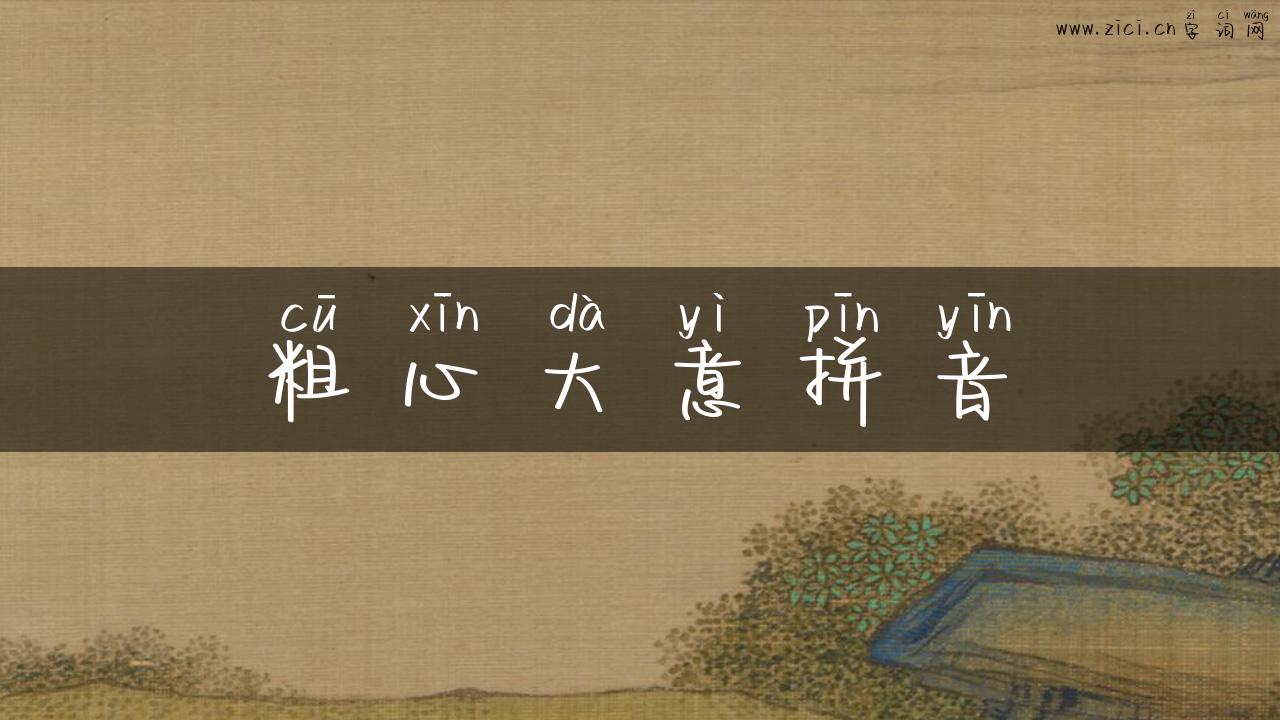 zì cí wǎng
www.zici.cn 字词网
cū xīn dà yì pīn yīn
粗心大意拼音